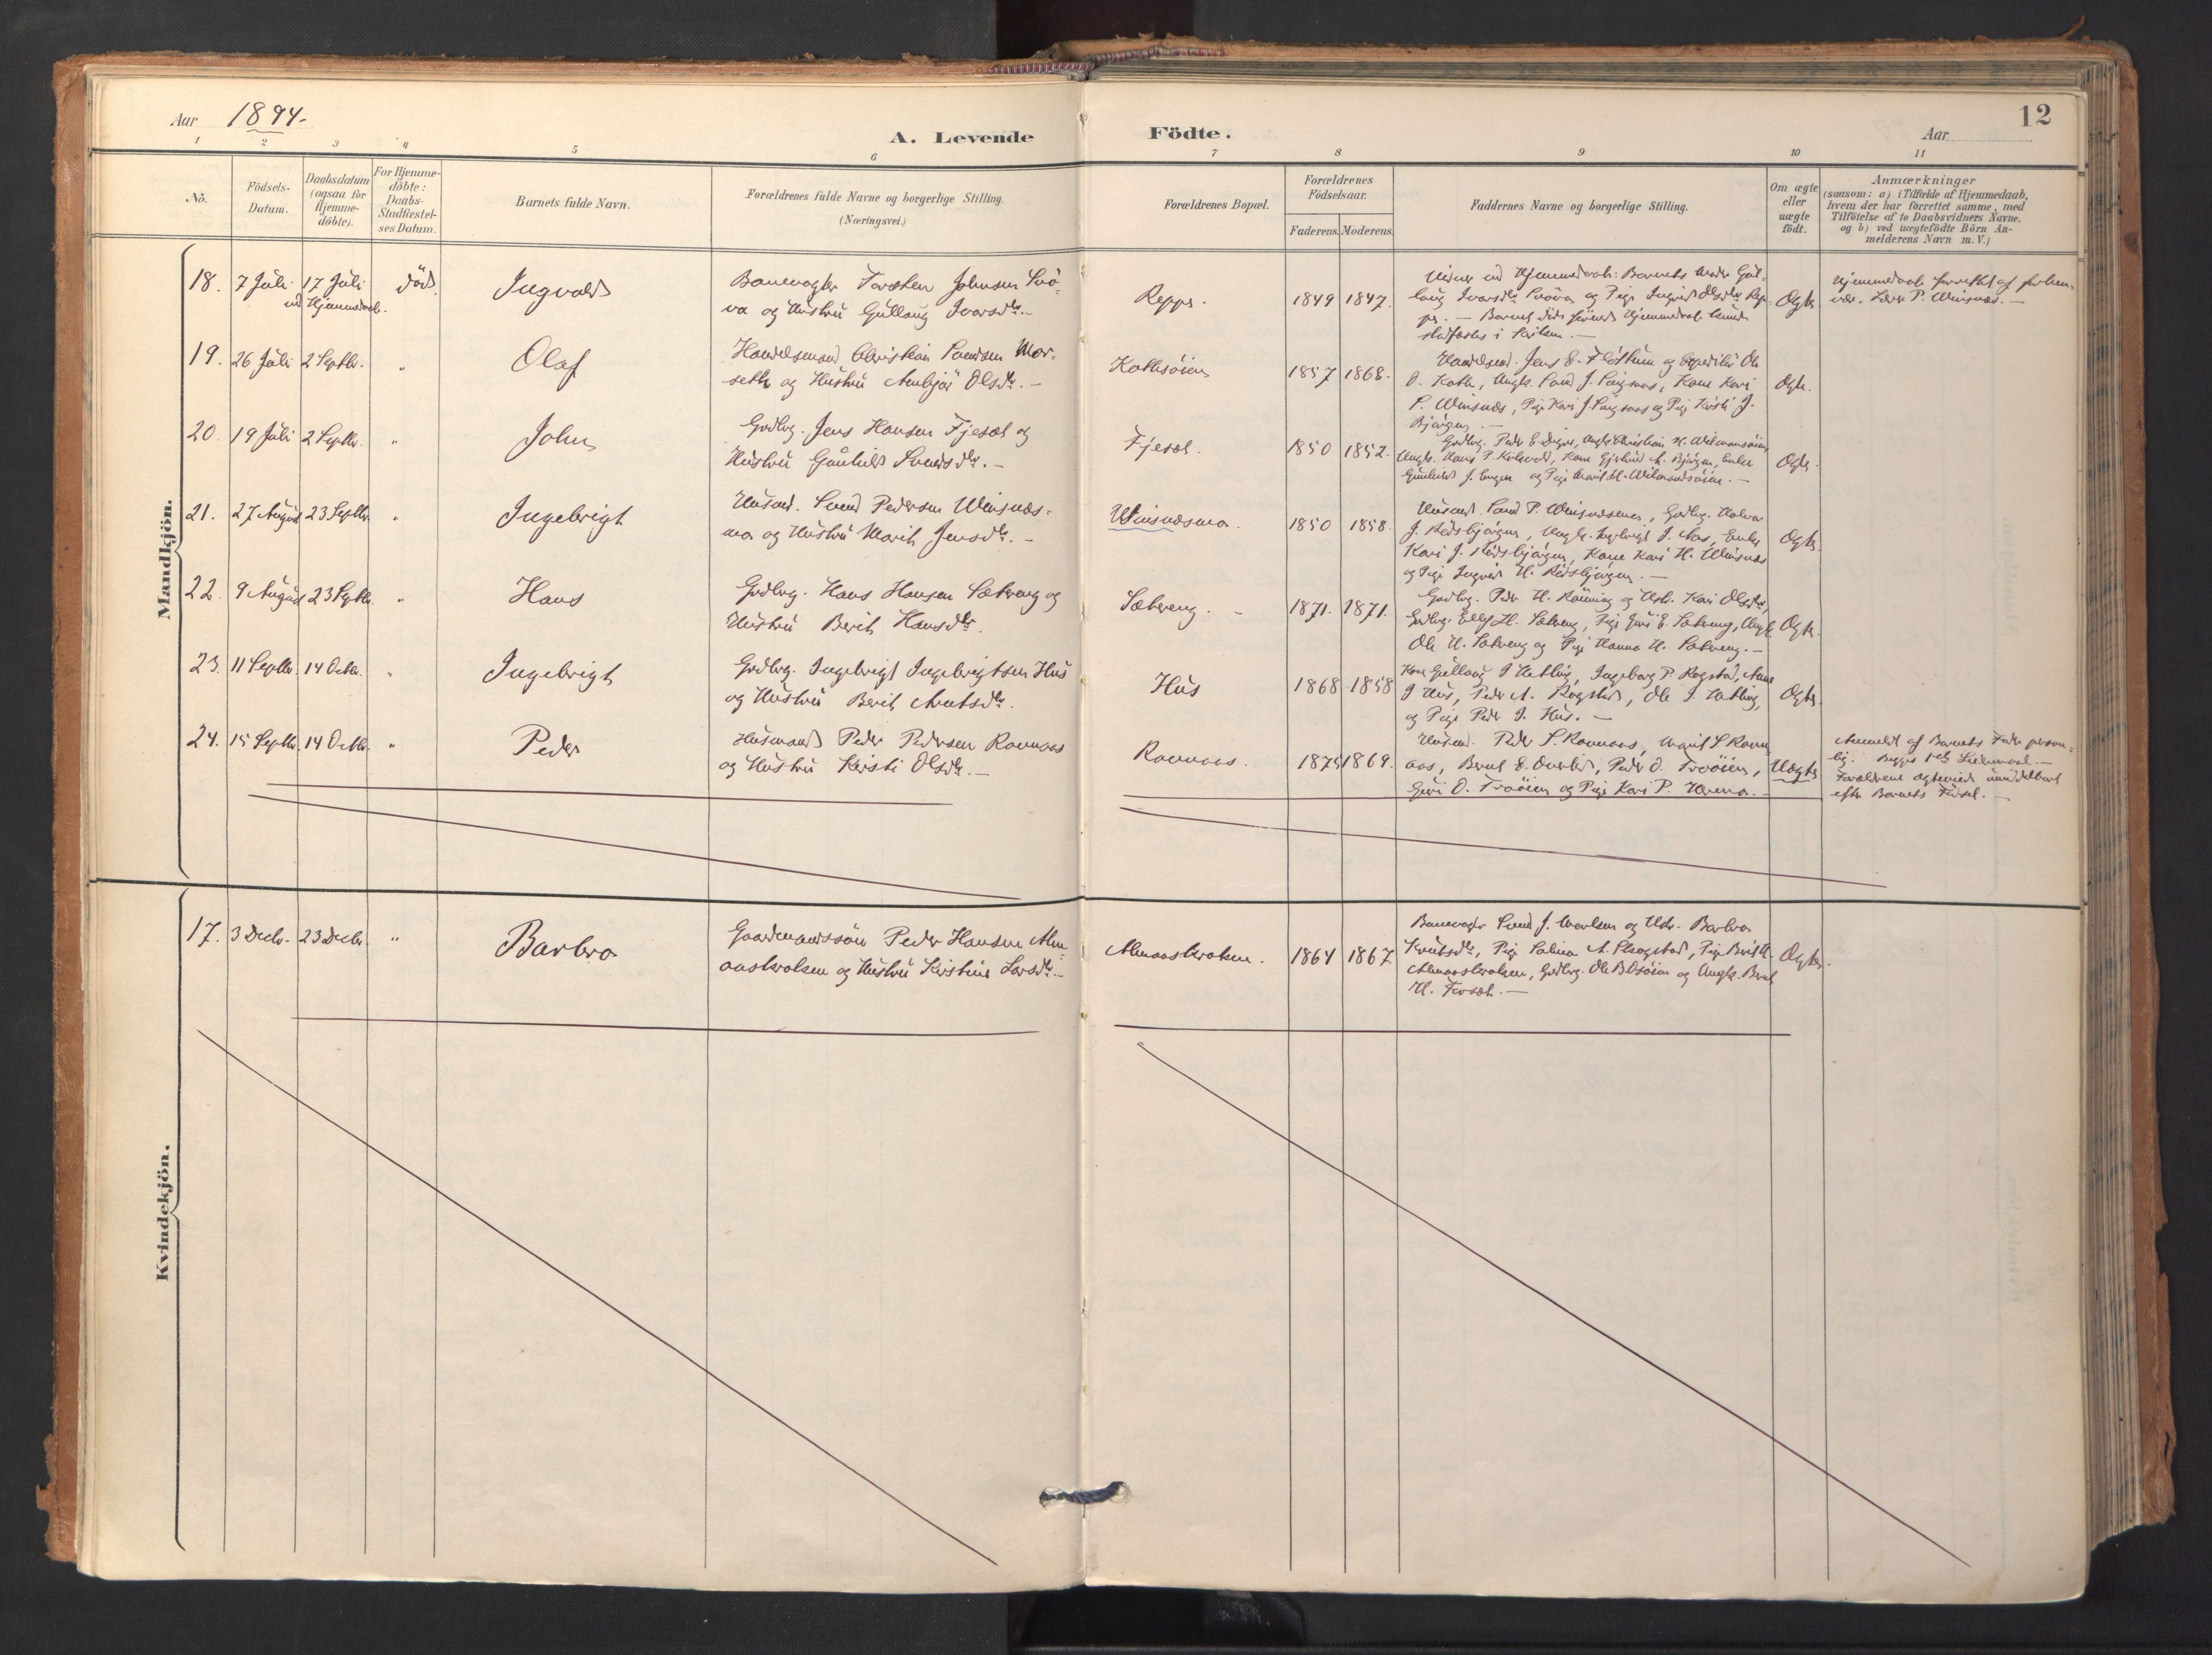 Aar 1894.
A. Levende Födte.
Aar
12
1 2 3 4 5 6 7 8 9 10 11
No.
Födsels-Datum.
Daabsdatum (ogsaa for Hjemme-döbte).
For Hjemme-döbte: Daabs-Stadfæstel-ses Datum.
Barnets fulde Navn.
Forældrenes fulde Navne og borgerlige Stilling.
(Næringsvei.)
Forældrenes Bopæl.
Forældrenes Födselsaar.
Faderens. Moderens.
Faddernes Navne og borgerlige Stilling.
Om ægte eller uægte födt.
Anmærkninger
(saasom: a) i Tilfælde af Hjemmedaab,
hvem der har forrettet samme, med
Tilföielse af to Daabsvidners Navne.
og b) ved uægtefödte Börn An-
melderens Navn m. V.)
Mandkjön.
18. 7 Juli 17 Juli ved Hjemmedaab. død. Ingvald
Banevogter Torsten Johnsen Svö-
va og Hustru Gullaug Ivarsdtr.
Repps. 1849 1847.
Vidner ved Hjemmedaab: Barnets Moder Gul-
laug Ivarsdtr Svöva og Pige Ingrid Olsdtr Rep-
pe. — Barnet døde förend Hjemmedaab kunde
stadfæstes i Kirken. —
Ægte
Hjemmedaab forrettet af forhen-
vær. Lærer P. Winsnæs. —
19. 26 Juli 2 Septbr. " Olaf
Handelsmand Christian Sandsen Mor-
seth og Hustru Anbjør Olsdtr. —
Kotsöien 1857 1868.
Handelsmd. Jens E. Fløttum og Expeditör Ole
O. Koth, Ungk. J. Singsaas, Kone Kari
P. Winsnæs, Pige Kari J. Singsaas og Pige Kirsti J.
Bjørgen. —
Ægte.
20. 19 Juli 2 Septbr. " John
Grdbrg. Jens Hansen Fjeset og
Hustru Gunhild Svendsdtr. —
Fjeset. 1850 1852.
Ungk. Hans P. Kirkvold, Kone Gjertrud A. Bjørgen, Enke
Gunhild J. Engen og Pige Marit H. Wilmandsöien. —
Ægte.
21. 27 August 23 Septbr. " Ingebrigt
Husmd. Svend Pedersen Winsnæs-
mo og Hustru Marit Jensdtr. —
Winsnæsmo. 1850 1858.
Husmd. P. Winsnæsmo, Grdbrg. Halvor
J. Rödsbjørgen, Ungk. Ingebrigt J. Aas, Enke
Kari J. Rödsbjørgen, Kone Kari H. Winsnæs
og Pige Ingrid H. Rödsbjørgen. —
Ægte.
22. 9 August 23 Septbr. " Hans
Grdbrg. Hans Hansen Sætereng og
Hustru Berit Hansdtr.
Sætereng. 1871. 1871.
Grdbrg. Peder H. Rönning og Hstr. Kari Olsdtr,
Grdbrg. H. Sætereng, Pige Guri E. Sætereng, Ungk.
Ole H. Sætereng og Pige Hanna H. Sætereng. —
Ægte.
23. 11 Septbr. 14 Octbr. " Ingebrigt
Grdbrg. Ingebrigt Ingebrigtsen Hus
og Hustru Berit Arntsdtr.
Hus 1868 1858
Kone Gullaug I. Hetling, Ingeborg P. Rogstad, Anne
I. Hus, Peder A. Rogstad, Ole I. Hetling,
og Pige Peder I. Hus. —
Ægte.
24. 15 Septbr. 14 Octbr. " Peder
Husmand Peder Pedersen Ramaas
og Hustru Kirsti Olsdtr. —
Ramaas. 1875 1869.
Husmd. Peder S. Ramaas, Marit S. Ram-
aas, Bernt E. Peder O. Troöien,
Guri O. Troöien og Pige Kari P.
Uægte
Anmeldt af Barnets Fader person-
lig. Begges 1ste Leiermaal. —
Forældrene ægteviede umiddelbart
efter Barnets Födsel. —
Kvindekjön.
17. 3 Decbr. 23 Decbr. " Barbro
Gaardmandssön Peder Hansen Alm-
aaskroken og Hustru Kirstine Larsdtr. —
Almaaskroken. 1864 1867.
Banevogter Svend J. og Hstr. Barbro
Knutsdtr, Pige A. Skogstad, Pige Berit H.
Almaaskroken, Grdbrg. Ole B. Osöien og Ungk. Bernt
H. Forset. —
Ægte.